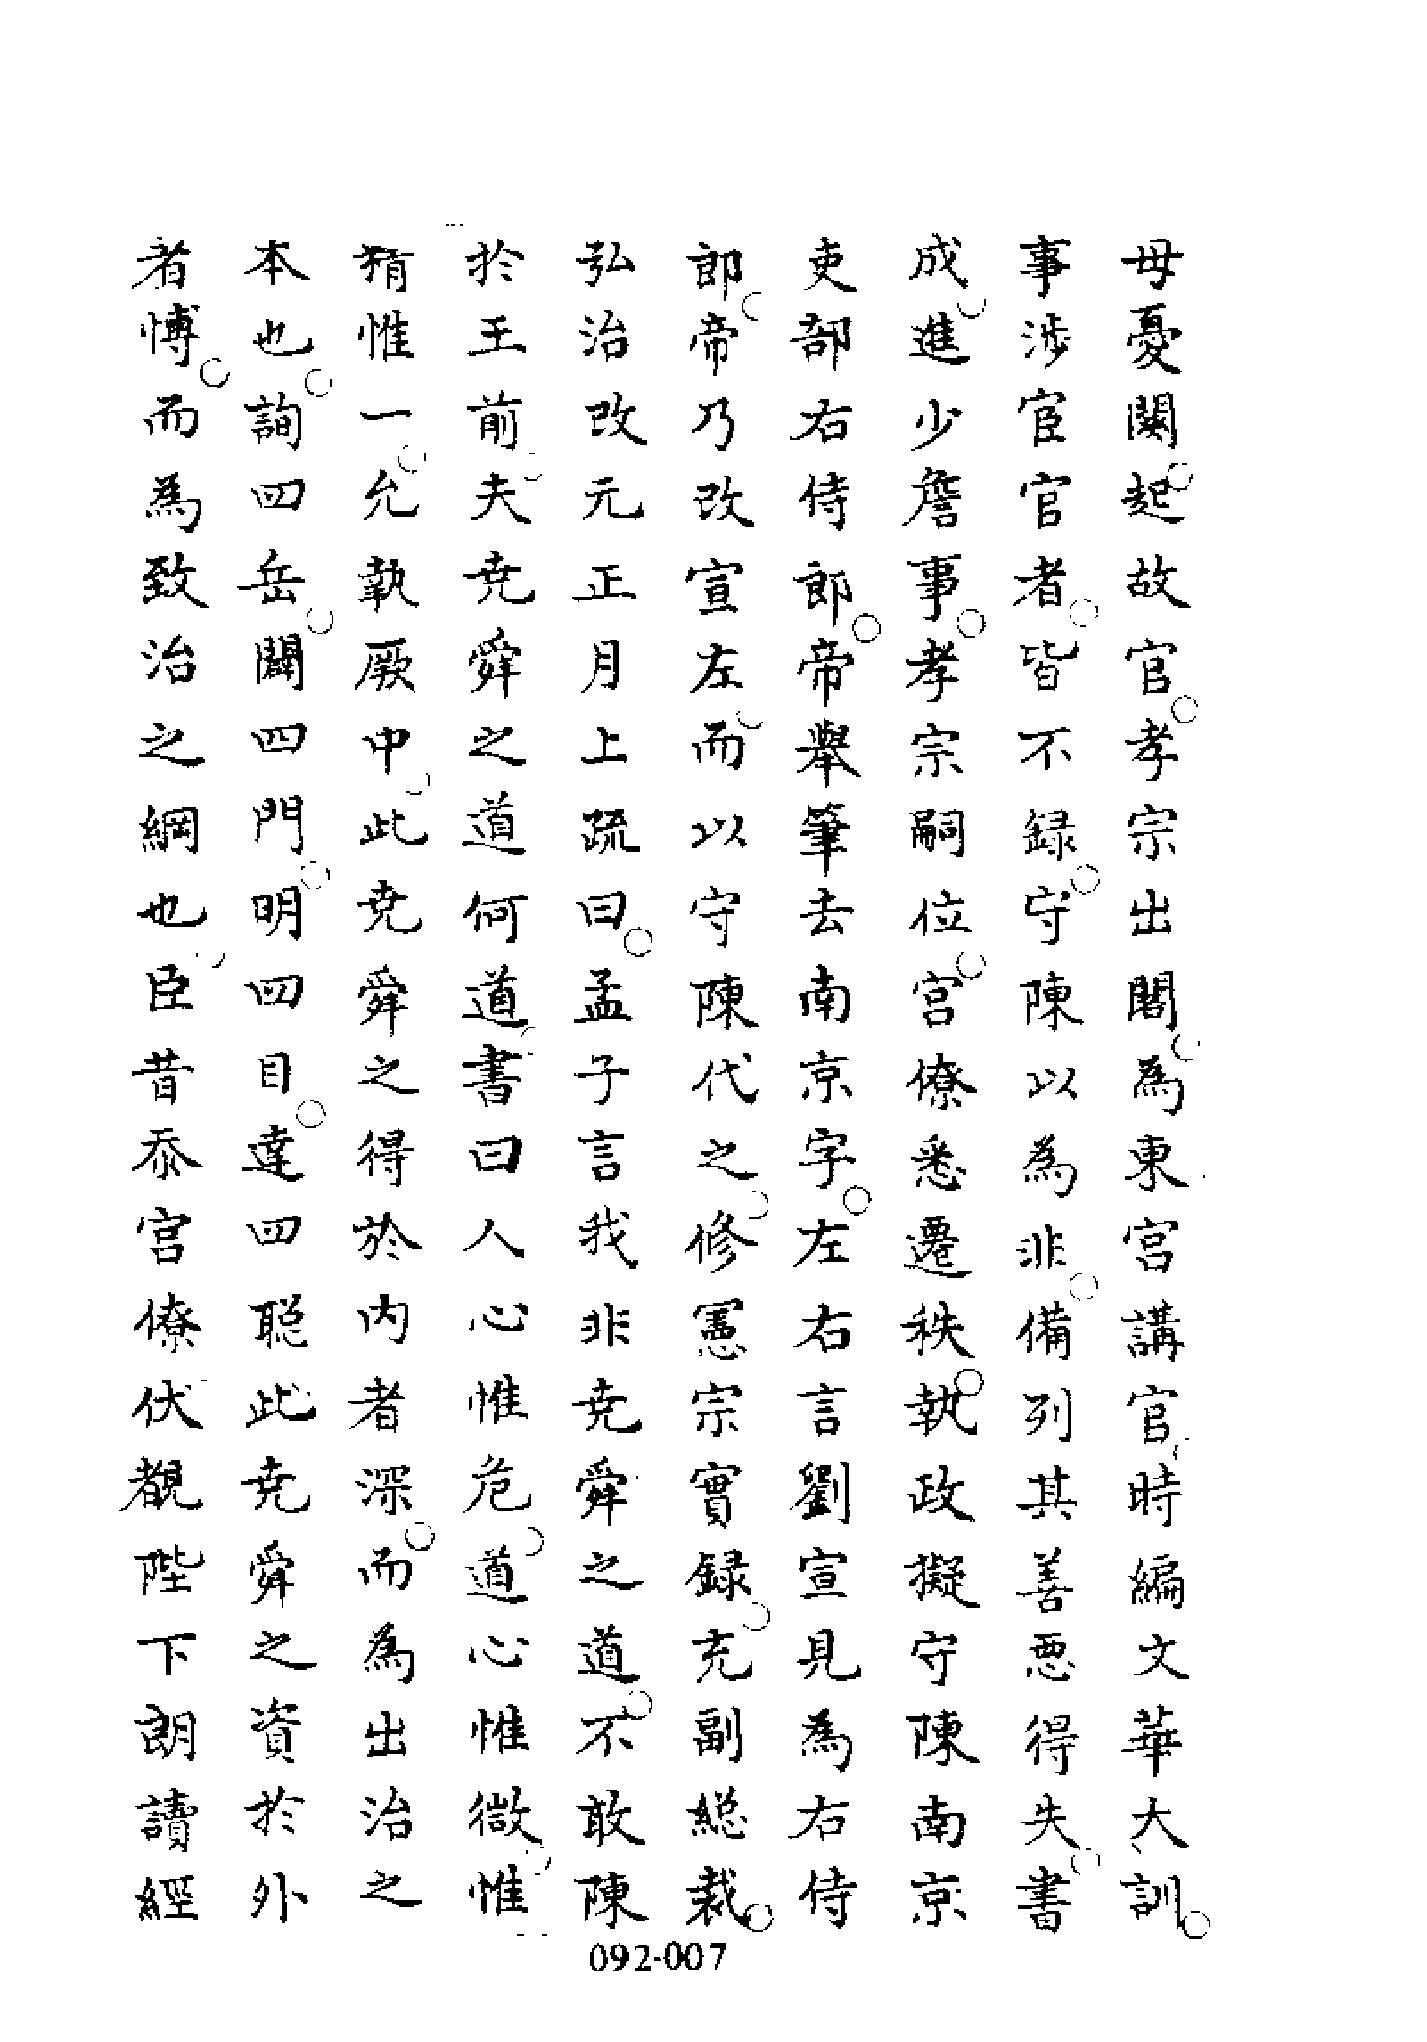 母憂闋起故官孝宗出閣為東宮講官時編文華大訓
事涉宦官者皆不録守陳以為非備列其善惡得失書
成進少詹事孝宗嗣位宮僚悉遷秩執政擬守陳南京
吏部右侍郎帝舉筆去南京字左右言劉宣見為右侍
郎帝乃改宣左而以守陳代之修憲宗實録充副総裁
弘治改元正月上疏曰孟子言我非尭舜之道不敢陳
於王前夫尭舜之道何道書曰人心惟危道心惟微惟
精惟一允執厥中此尭舜之得於内者深而為出治之
本也詢四岳闢四門明四目達四聪此尭舜之資於外
者博而為致治之綱也臣昔忝宮僚伏覩陛下朗讀經
092-007